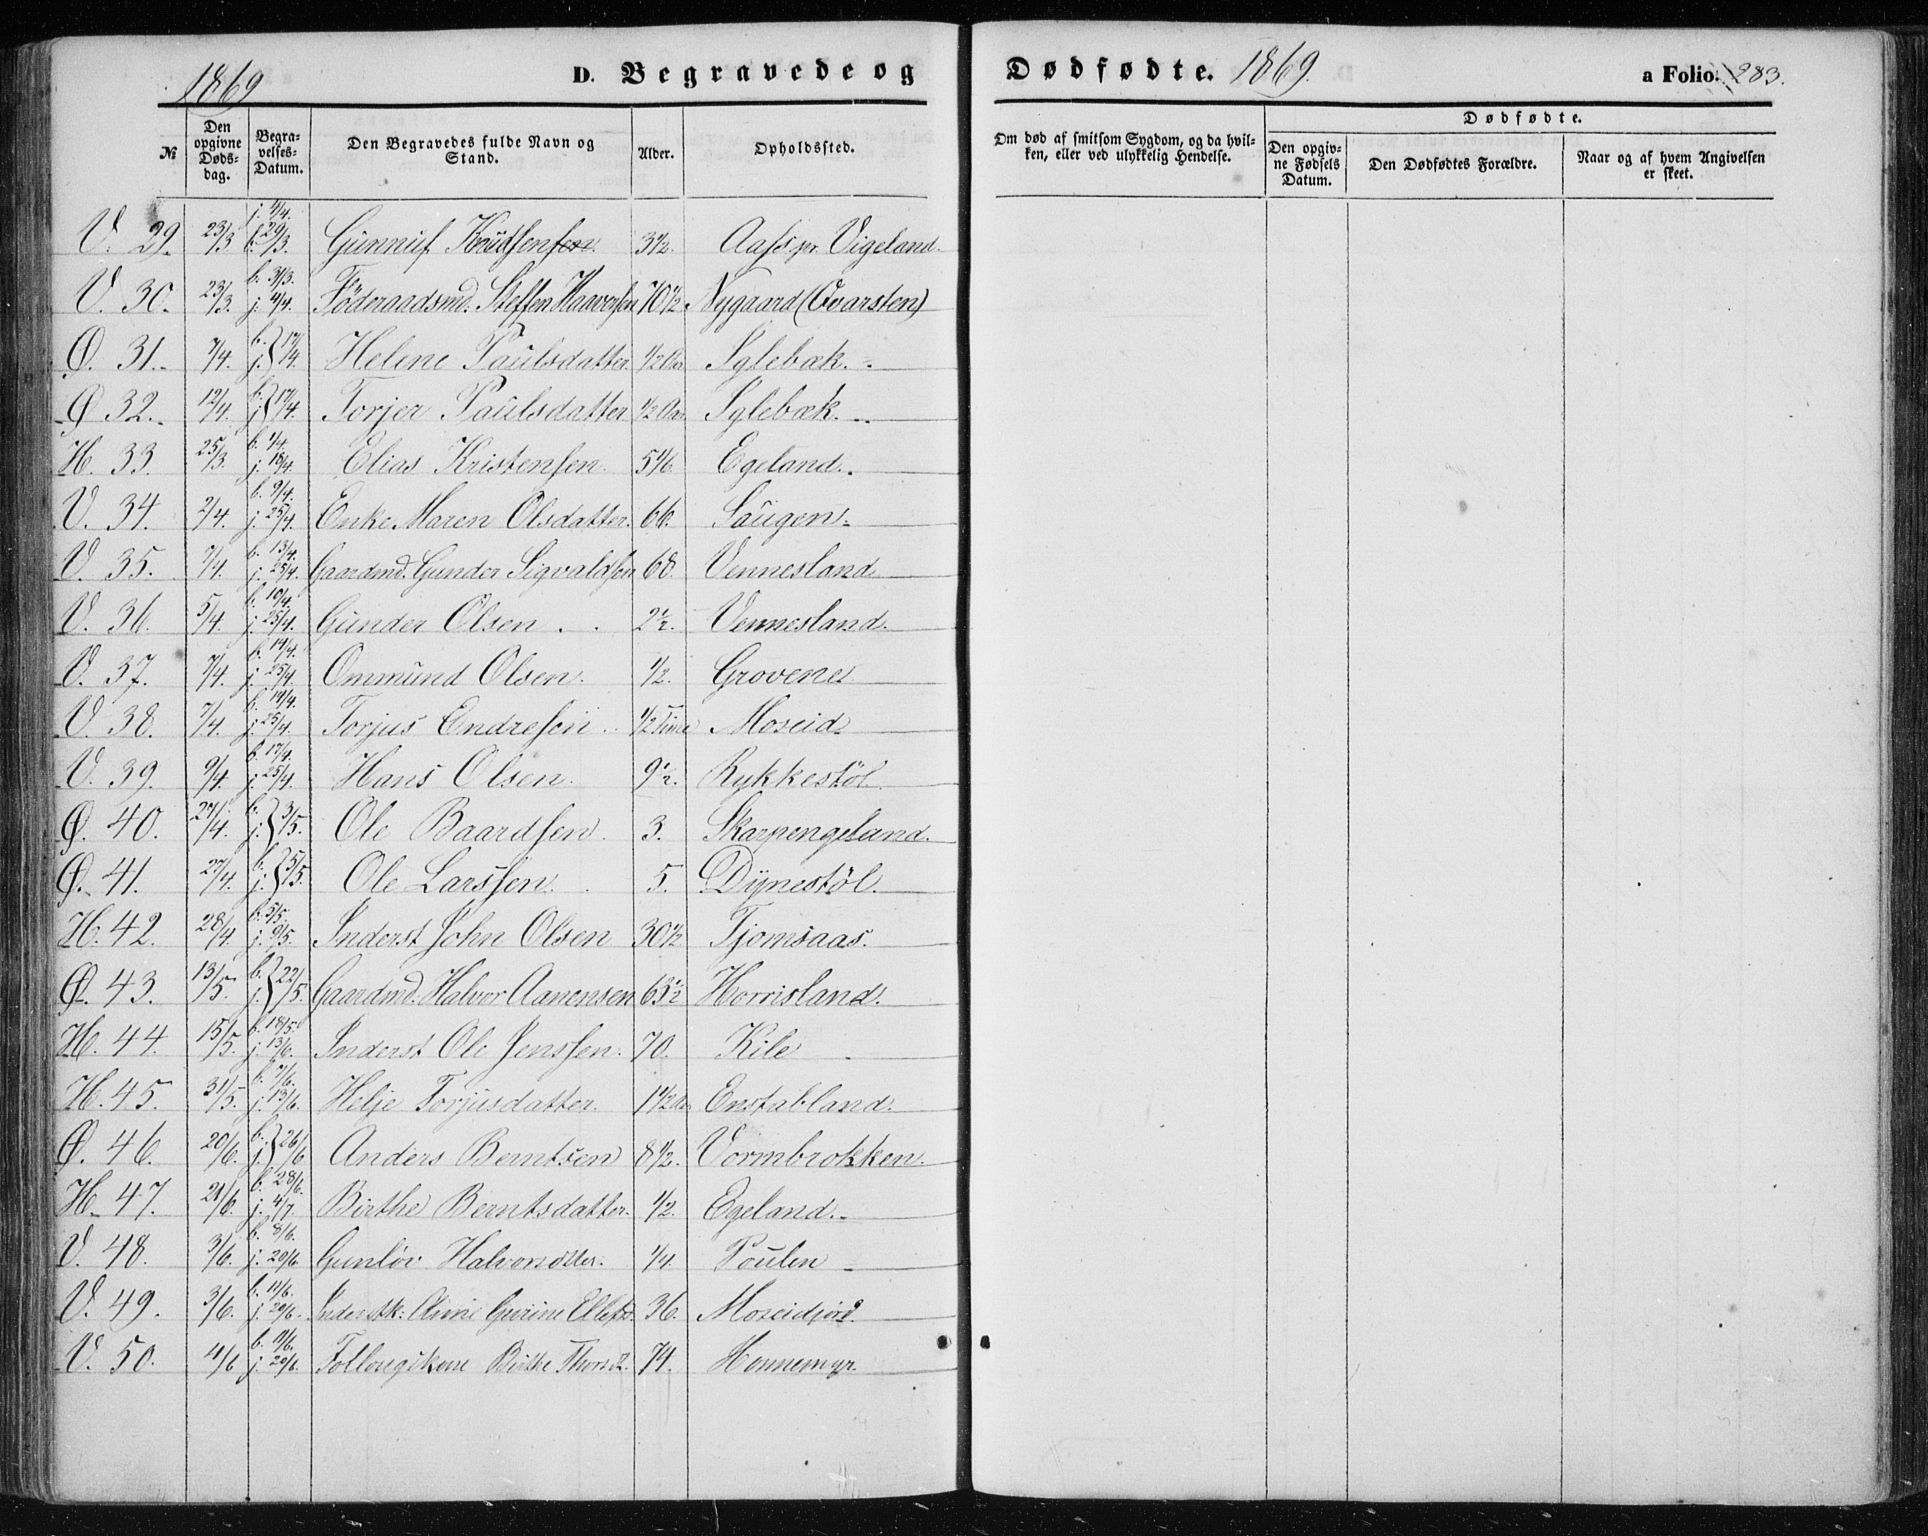 1869 D. Begravede og Dødfødte. 1869. a Folio. 283.
№ Den opgivne Døds-dag. Begra-velses-Datum. Den Begravedes fulde Navn og Stand. Alder. Opholdssted. Om død af smitsom Sygdom, og da hvil-ken, eller ved ulykkelig Hendelse. Dødfødte.
Den opgiv-ne Fødsels Datum. Den Dødfødtes Forældre. Naar og af hvem Angivelsen er skeet.
V. 29. 23/3 j. 4/4. b. 29/3. 3 1/2. Vigeland.
V. 30. 23/3. b. 31/3. j. 4/4. Föderaadsmd. Steffen Haaversen 70 1/2. Nygaard (Qvarsten)
Ø. 31. 7/4. b. j. } 17/4. Helene Paulsdatter. 1/2 Aar Sglebæk.
Ø 32. 12/4. b. j. } 17/4. Torjer Paulsdatter 1/2 Aar Sglebæk.
H. 33. 25/3. b. 1/4. j. 18/4. Elias Kristensen. 5 1/6. Egeland.
V. 34. 2/4. b. 9/4. j. 25/4. Enke Maren Olsdatter. 66. Saugen
V. 35. 7/4. b. 13/4. j. 25/4. Gaardmd. Gunder Sigvaldsen 68. Vennesland
V. 36. 5/4. b. 10/4. j. 25/4. Gunder Olsen 2 1/2. Vennesland.
V. 37. 7/4. b. 14/4. j. 25/4. Ommund Olsen. 1/2. Grovene
V. 38. 7/4. b. 14/4. j. 25/4. Torjus Endresen 1/2 Time Moseid
V. 39. 9/4. b. 17/4. j. 25/4. Hans Olsen. 9 1/2. Rykkestöl
Ø. 40. 27/4. b. j. } 3/5. Ole Baardsen. 3. Skarpengeland.
Ø. 41. 27/4. b. j. } 5/5. Ole Larssen. 5. Dynestöl.
H. 42. 28/4. b. 5/5. j. 9/5. Inderst John Olsen 30 1/2 Tjomsaas.
Ø. 43. 13/5. b. j. } 22/5. Gaardmd. Halvor Aanensen 63 1/2 Horrisland.
H. 44. 15/5. b. 18/5. j. 13/6. Inderst Ole Jenssen. 70. Kile
H. 45. 31/5. b. 7/6. j. 13/6. Helje Torjusdatter. 1 1/2 Enstabland.
Ø. 46. 20/6. b. j. } 26/6 Anders Berntsen 8 1/2. Vormbrokken.
H. 47. 21/6. b. 28/6. j. 4/7. Birthe Berntsdatter. 1/2. Egeland.
V. 48. 3/6. b. 8/6. j. 20/6. Gunlöv Halvorsdtter. 1/4. Poulen
V. 49. 3/6. b. 11/6. j. 20/6. Inderstk: Anne Gurine 36. Moseidjord.
V. 50. 4/6 b. 11/6. j. 20/6. Birthe Thorsd. 74. Honnemyr.